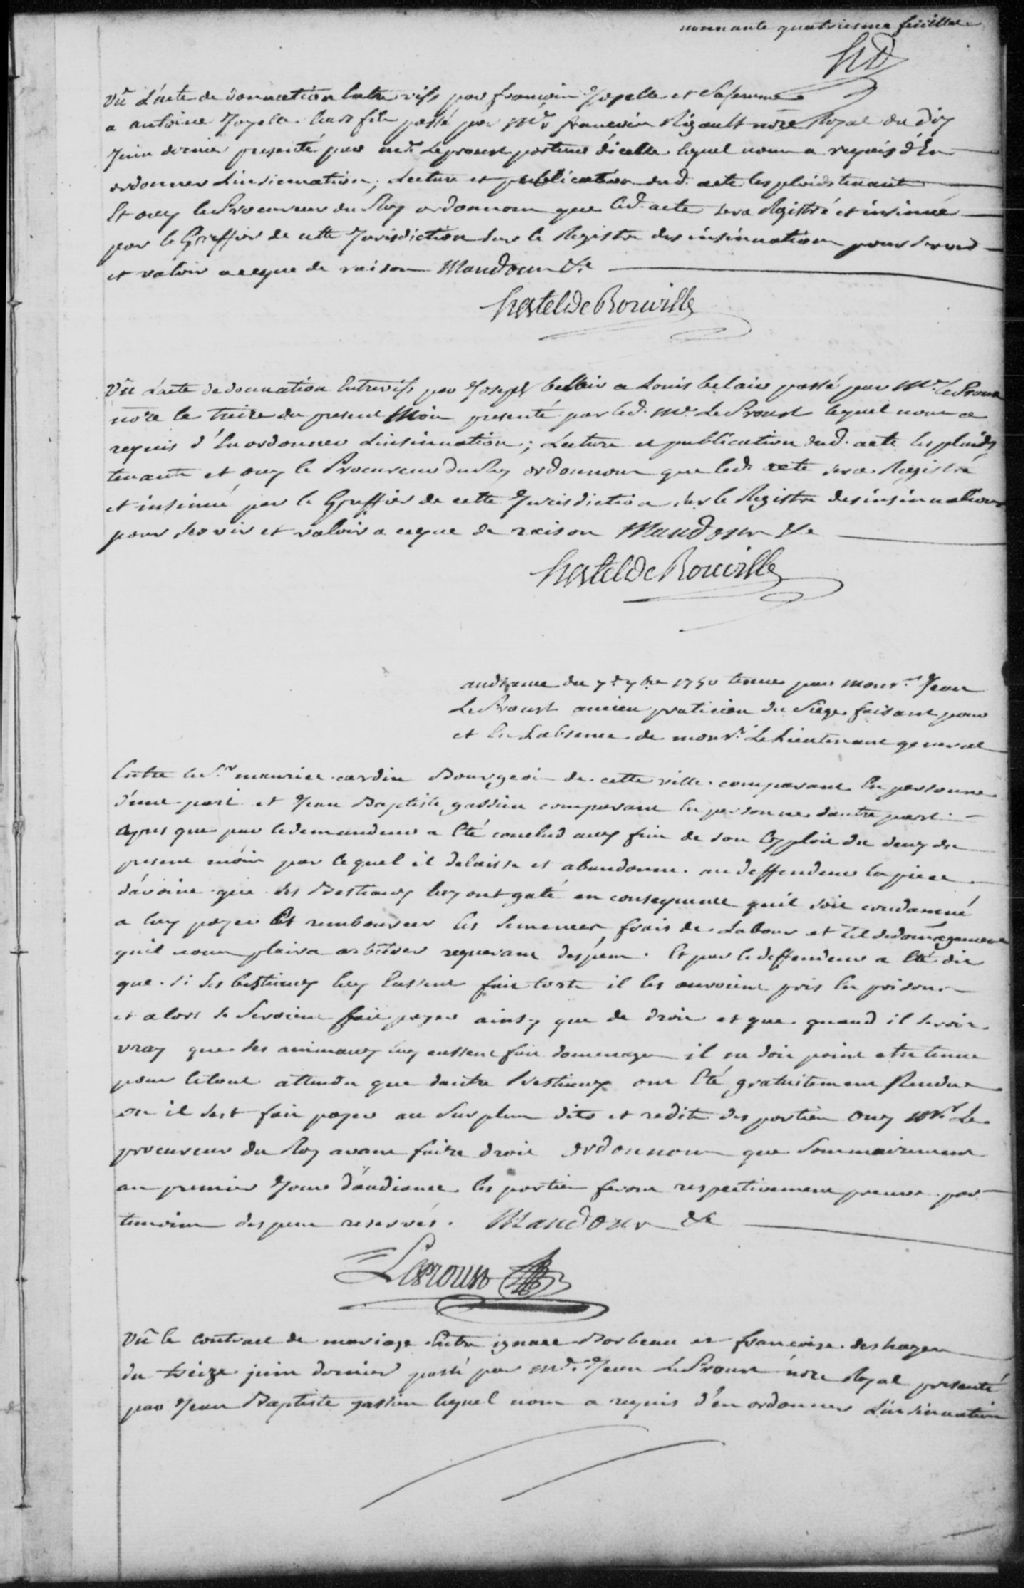 nonnante quatriesme feüillet
HB
Vû L'acte de donnation Entre vifs par françois Joyelle et Sa femme
a antoine Joyelle leur fils passé par Me françois Rigault notre Royal du dix
Juin dernier presenté par Me Leproust porteur dicelle lequel nous a requis d'En
ordonner Linsinuation, Lecture et publication dud. acte les plaids tenant
Et ouy le Procureur du Roy ordonnons que led acte sera Registré et insinué
par le Greffier de cette Jurisdiction sur le Registre des insinuations pour servir
et valoir a ceque de raison Mandons &c
hertel De Rouville
Vû L'acte de donnation Entrevifs par Joseph bellair a Louis belair passé par Me Le Proust
nore le treize du present Mois presenté par led. Me Le Proust lequel nous a
requis d'En ordonner Linsinuation; Lecture et publication dud. acte les plaids
tenants et ouy le Procureur du Roy ordonnons que led acte sera Registré
et insinué par le Greffier de cette Jurisdiction sur le Registre des insinuations
pour servir et valoir a ceque de raison Mandons &c
hertel De Rouville
audiance du 7e 7bre 1750 tenue par monsr. Jean
Le Proust ancien praticien du Siege faisant pour
et En Labsence de monsr. Le Lieutenant general
Entre le Sr. maurice cardin Bourgeois de cette ville comparant En personne
d'une part et Jean Baptiste gassien comparant En personne dautre part.
apres que par le demandeur a Eté conclud aux fins de son Exploit du deux du
present mois par lequel il delaisse et abandonne au deffendeur la piece
d'avoine que ses Bestiaux luy ont gaté en consequence quil soit condamné
a luy payer et rembourser les semences frais de Labour et tel dedomagement
quil nous plaira arbitrer requerant depens. Et par le deffendeur a Eté dit
que si ses bestiaux luy Eussent fait torts il les auroient pris En prison
et alors se seroient fait payer ainsy que de droit et que quand il seroit
vray que ses animaux luy eussent fait dommage il ne doit point etre tenue
pour le tout attendu que dautre Bestiaux ont Eté gratuitement Rendue
ou il s'est fait payer au Surplus dits et redits des parties Ouy Mr. Le
procureur du Roy avant faire droit ordonnons que Sommairement
au premier Jour d'audiance les parties feront respectivement preuve par
temoins depens reservés. Mandons &c
Leproust
Vû le contract de mariage Entre ignace Borbeau et françoise deshayes
du treize juin dernier passé par Me. Jean LeProust notre Royal presenté
par Jean Baptiste gassien lequel nous a requis d'en ordonner Linsinuation